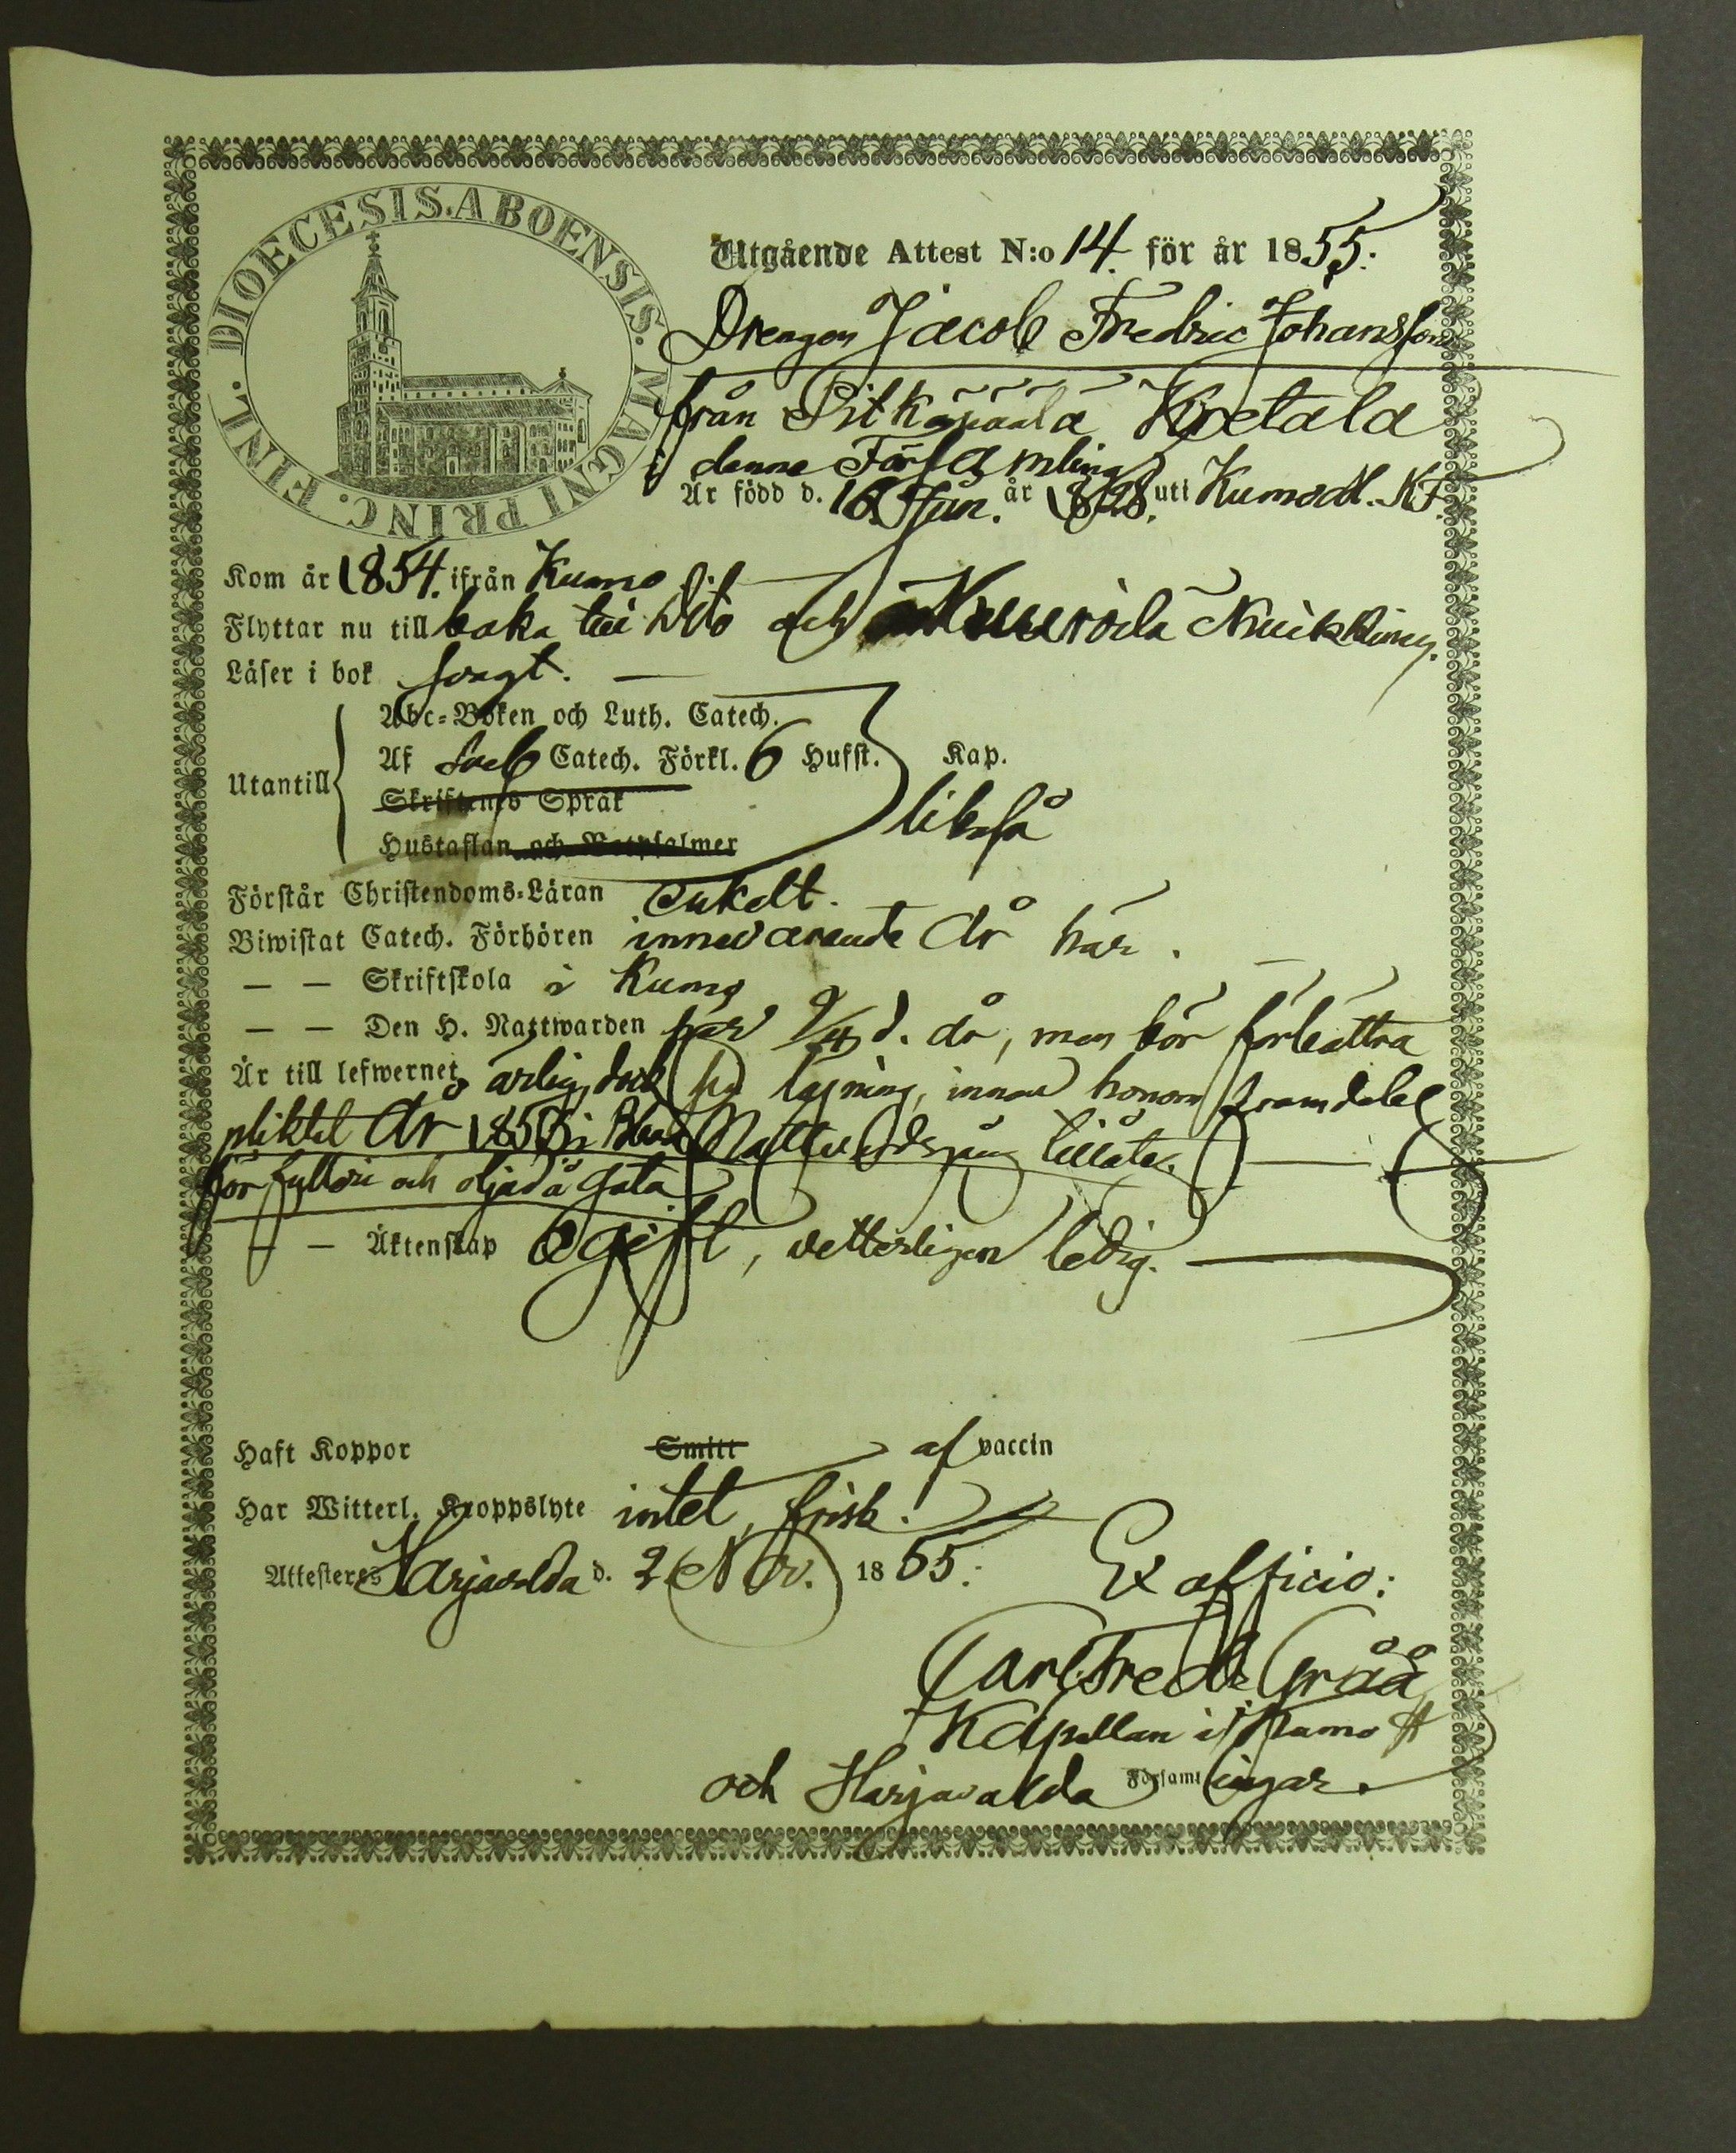 DIOECESIS.ABOENSIS.MAGNI PRINC. FINL.
Utgående Attest N:o 14. för år 1855.
Drengen Jacob Fredric Johansson
från Pitkäpäälä Kretala
i denna Församling
Är född d. 16 Jan. år 1828. uti Kumo M. KF.
Kom år 1854. ifrån Kumo
Flyttar nu till baka till dito och
Läser i bok svagt.
Abc-Boken och Luth. Catech.
Utantill Af Sveb Catech. Förkl. 6 Hufst. Kap.
Skriftenes Språk
likaså
Hustaflan och Botpsalmer
Förstår Christendoms-Läran enkelt.
Biwistat Catech. Förhören innevarande år här.
— — Skriftskola i Kumo
— — Den H. Nattwarden här d. år, men bör förbättra
Är till lefwernet ärlig, dock sin läsning, innan honom framdeles
pliktat år Nattvardsgång tillåtes.
för fylleri och oljud å gata
— — Äktenskap ogift, vetterligen ledig.
Haft Koppor Smitt af vaccin
Har Witterl. Kroppslyte intet, frisk.
Attesteres Harjavalda d. 2 Nov. 1855. Ex officio:
Carl Fredr Gråå
Kapellan i Kumo
och Harjavalda Församlingar.